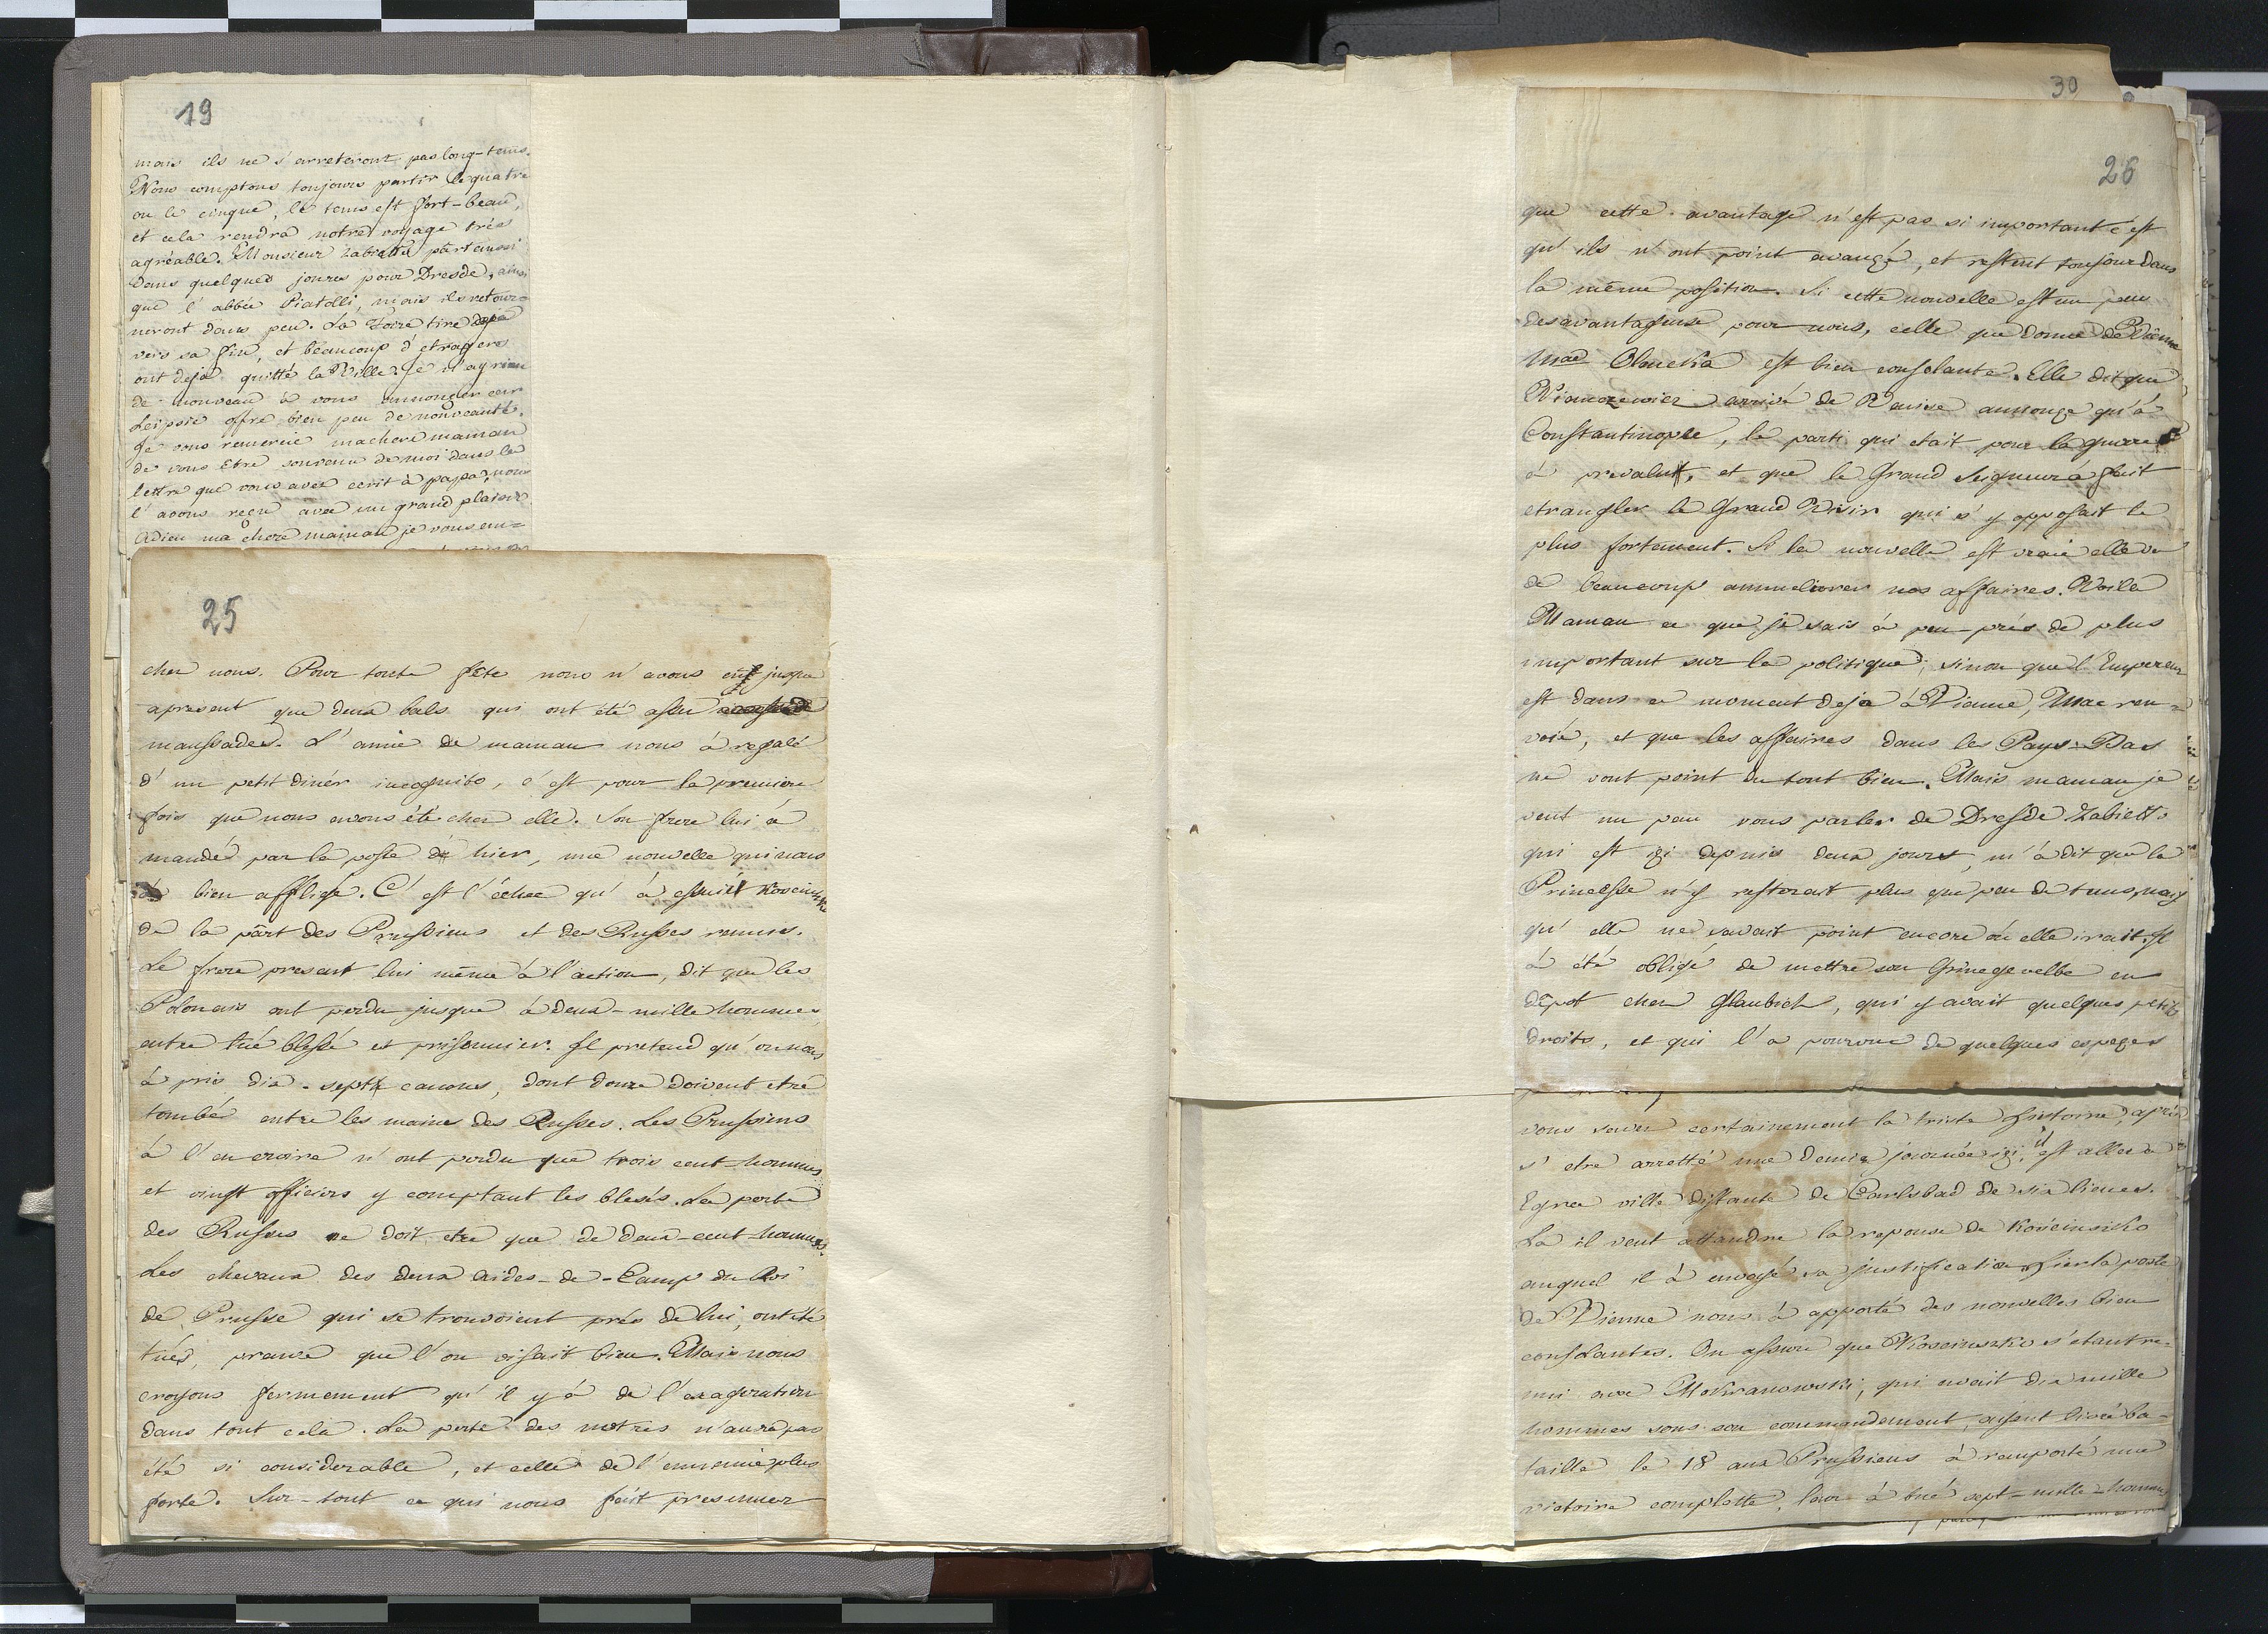 19
mais ils ne s'arreteront pas long-tems.
Nous comptons toujours partir le quatre
ou le cinque, le tems est fort-beau,
et cela rendra notre voyage trés
agréable. Monsieur Zabiello part aussi
dans quelques joures pour Dresde, ainsi
que l'abbée Piatolli, mais ils retour=
neront dans peu. La Foire tire
vers sa fin, et beaucoup d'etragers
ont deja quitté la Ville. Je n'ay rien
de nouveau à vous annoncer car
Leipsic offre bien peu de nouveauté.
Je vous remercie ma chere maman
de vous etre souvenu de moi dans la
lettre que vous avez ecrit à papa, nous
l'avons reçu avec un grand plaisir
Adieu ma chere maman je vous em=
25
cher nous. Pour toute fête nous n'avons eut jusqu
apresent que deux bals qui ont été assez
maussades. L'amie de maman nous à regalé
d'un petit dinér incognito, c'est pour la premiere
fois que nous avons été cher elle. Son frere lui à
mandé par la poste de hier, une nouvelle qui nous
à bien affligé. C'est l'échec qu'à essuié Kosciuszko
de la part des Prussiens et des Russes reunis.
Le frere present lui même à l'action, dit que les
Polonais ont perdu jusque à deux-mille hommes,
entre tué blessé et prisonnier. Il pretend qu'on nous
à pris dix-sept canons, dont douze doivent etre
tombé entre les mains des Russes. Les Prussiens
à l'en croire n'ont perdu que trois cent hommes
et vingt officiers y comptant les blesés. La perte
des Russes ne doit etre que de deux-cent hommes.
Les chevaux des deux aides-de-Camp du Roi
de Prusse qui se trouvoient prés de lui, ont été
tués, preuve que l'on visait bien. Mais nous
croyons fermement qu'il y à de l'exageration
dans tout cela. La perte des notres n'aura pas
été si considerable, et celle de l'ennemie plus
forte. Sur-tout ce qui nous fait presumer
30
26
que cette avantage n'est pas si important c'est
qu'ils n'ont point avançé, et restent toujour dans
la même position. Si cette nouvelle est un peu
desavantageuse pour nous, celle que donne de Vienne
Mad est bien consolante. Elle dit que
arrivé de Venise annonçe qu'à
Constantinople, le parti qui etait pour la guerre
à prevalut, et que le Grand Seigneur à fait
etrangler le Grand Visir qui s'y opposait le
plus fortement. Si la nouvelle est vraie elle va
de beaucoup ammeliorer nos affaires. Voila
Maman ce que je sais à peu prés de plus
important sur la politique, sinon que l'Empereur
est dans ce moment deja à Vienne, Mac ren=
voié, et que les affaires dans les Pays-Bas
ne vont point du tout bien. Mais maman je
veut un peu vous parler de Dresde. Zabiello
qui est içi depuis deux joures, m'à dit que la
Princesse n'y resterait plus que peu de tems, mais
qu'elle ne savait point encore ou elle irait. Il
à été obligé de mettre son en
dêpot cher Glaubich, qui y avait quelques petits
droits, et qui l'a pourvue de quelques espeçes
vous savez certainement la triste histoire, aprés
s'etre arretté une demie journée içi, il est allee à
Egra ville distante de Carlsbad de six lieues.
La il veut attandre la reponse de Kościuszko
auquel il à envoyé sa justification. Hier la poste
de Vienne nous à apporté des nouvelles bien
consolantes. On assure que Kosciuszko s'etant re=
uni avec Mokranowski, qui avait dix mille
hommes sous son commandement, ayant livré ba=
taille le 18 aux Prussiens à remporté une
victoire complette, leur à tué sept-mille-hommes